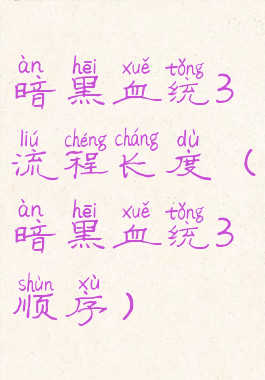 àn hēi xuě tǒng
暗黑血统3
liú chéng cháng dù
流程长度（
àn hēi xuě tǒng
暗黑血统3
shùn xù
顺序）